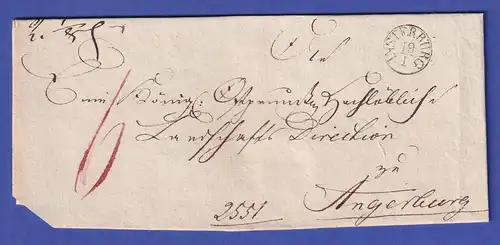 INSTERBURG
19
1
Die
Eine Königl: Ostpreuss Hochlöbliche
Landschafts Direction
zu
Angerburg
2551